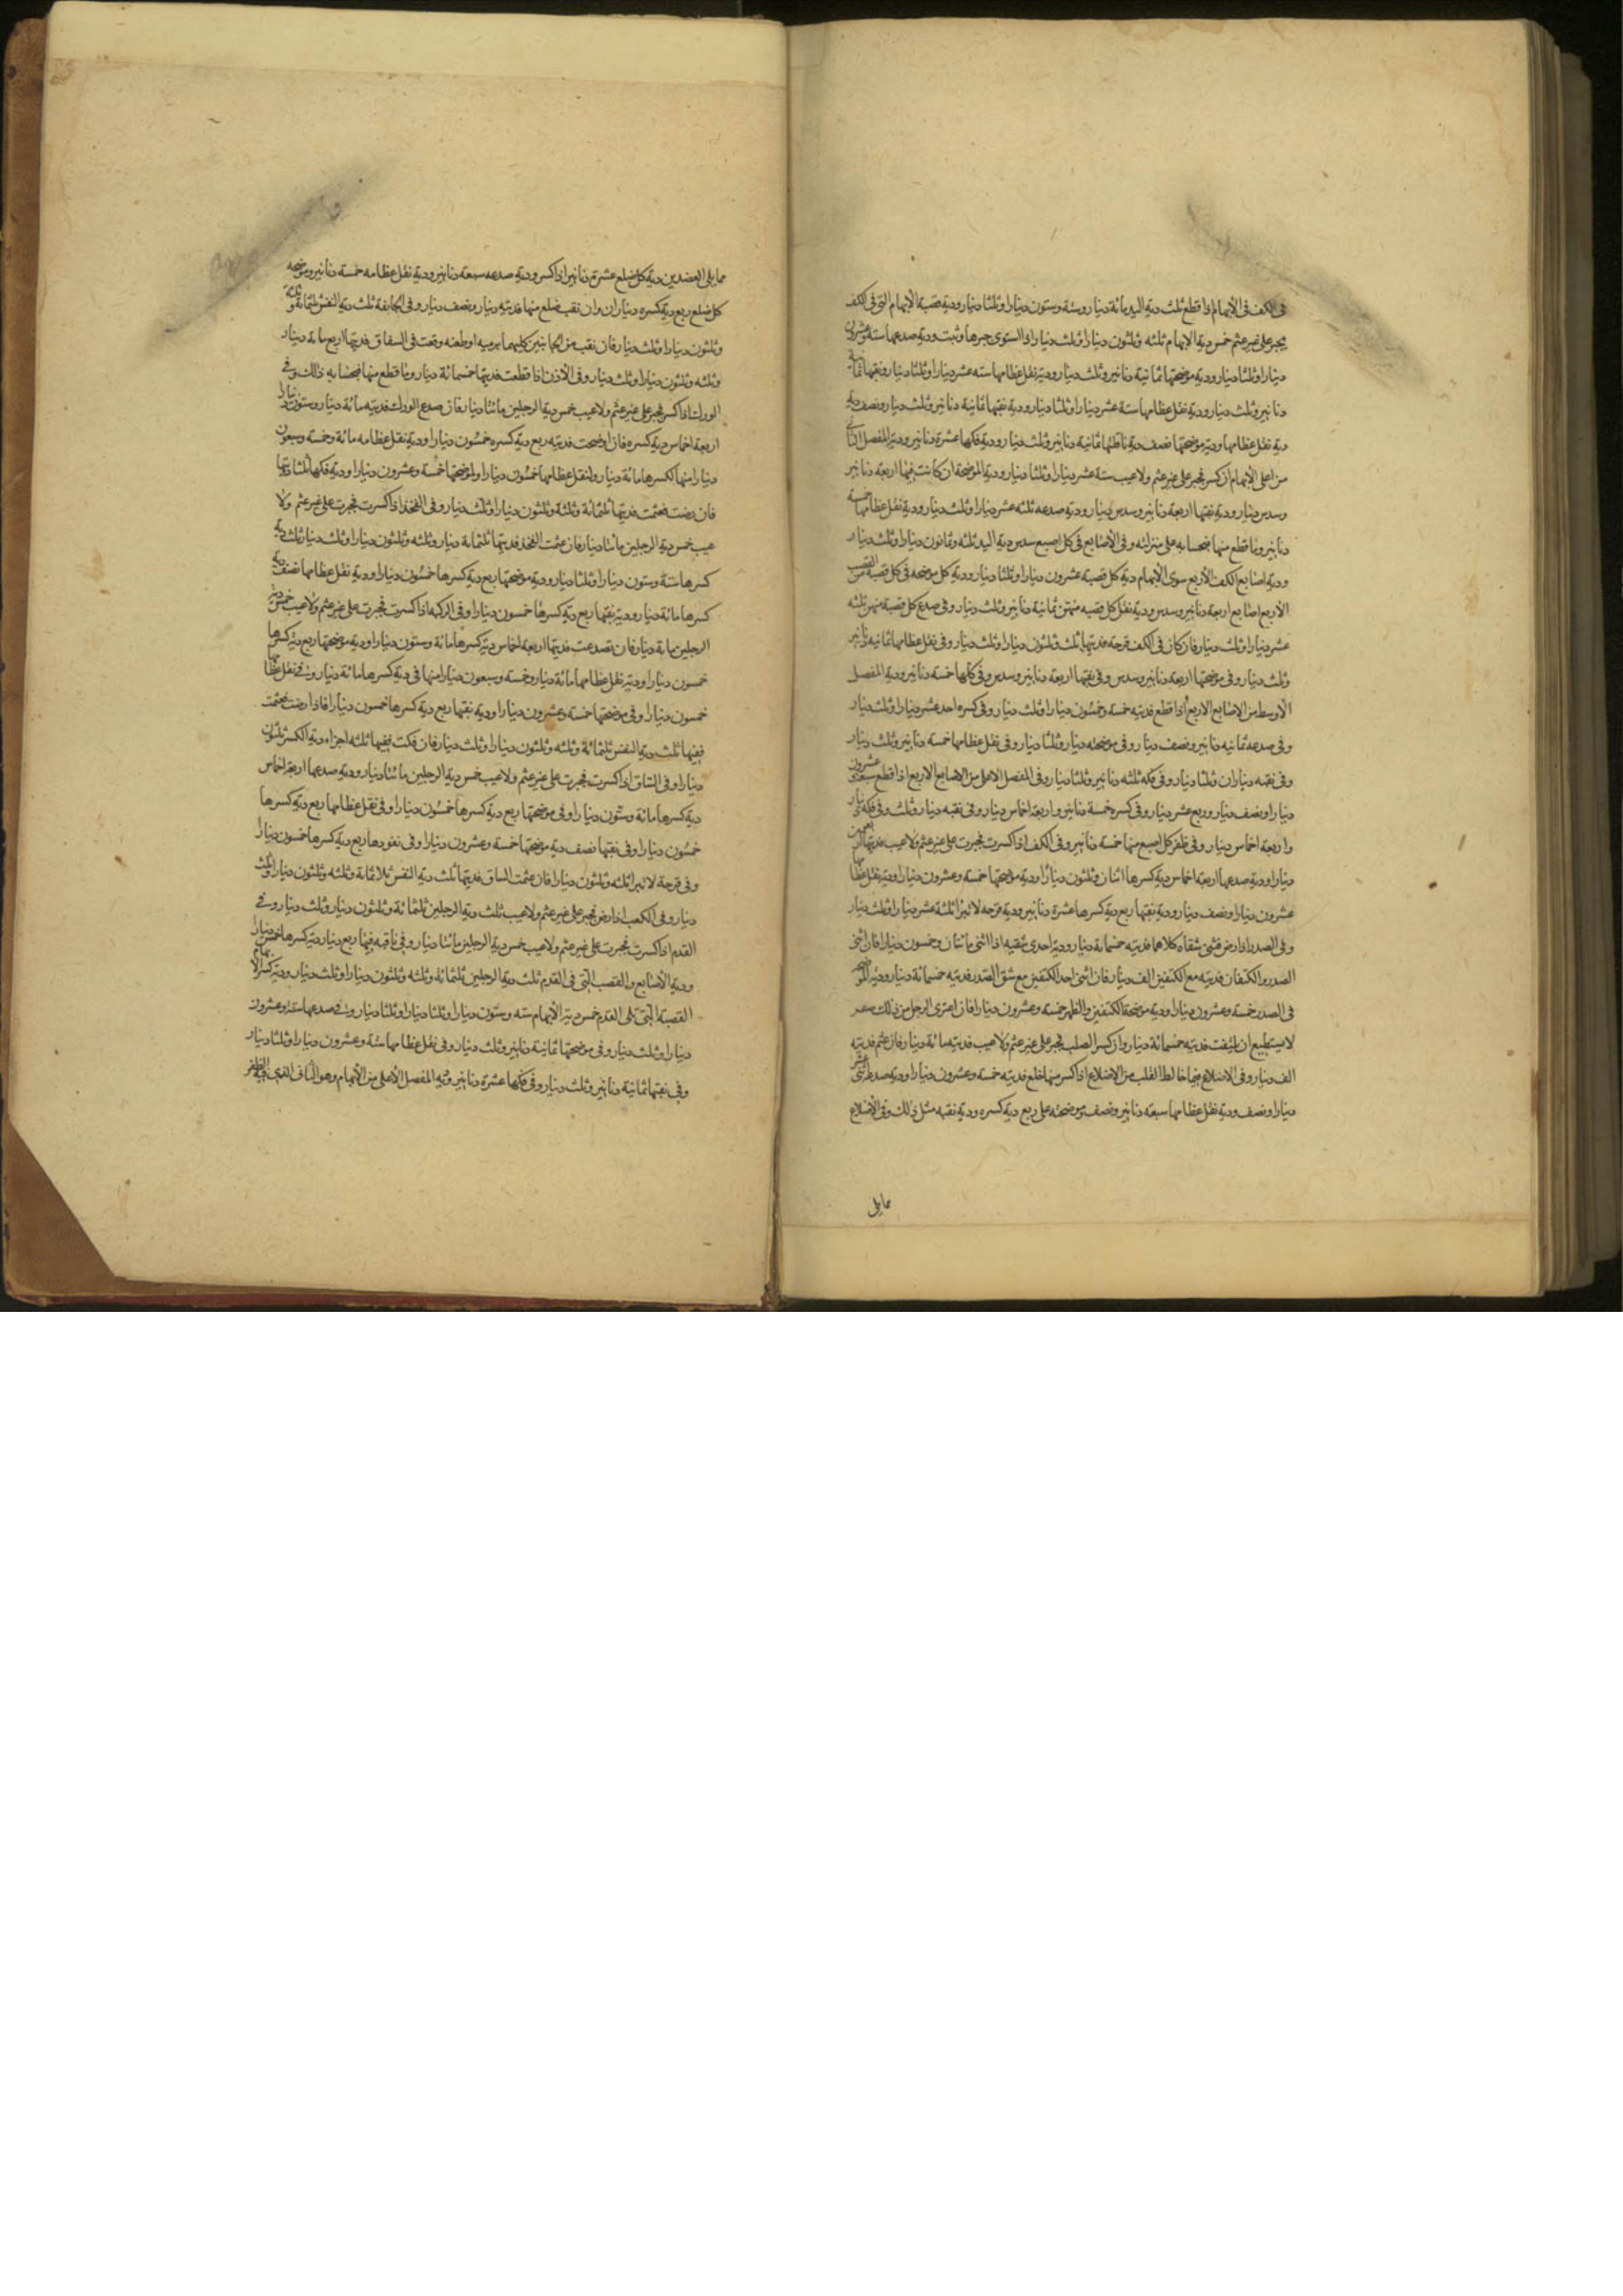 فی الکف فی الابهام اذا قطع ثلث دیة الید مائة دینار وستة وستون دینارا وثلثا دینار ودیة قصبة الابهام التی فی الکف
یجبر علی غیر عثم خمس دیة الابهام ثلثه وثلثون دینارا وثلث دینار اذا استوی جبرها وثبت ودیة صدعها ستة وعشرون
دینارا وثلثا دینار ودیة موضحتها ثمانیة دنانیر وثلث دینار ودیة نقل عظامها ستة عشر دینارا وثلثا دینار ودیة نقبها ثمانیة
دنانیر وثلث دینار ودیة نقل عظامها ستة عشر دینارا وثلثا دینار ودیة نقبها ثمانیة دنانیر وثلث دینار ونصف دیة
دیة نقل عظامها ودیة موضحتها نصف دیة ناقلتها ثمانیة دنانیر وثلث دینار ودیة فکها عشرة دنانیر ودیة المفصل الثانی
من اعلی الابهام ان کسر فجبر علی غیر عثم ولا عیب ستة عشر دینارا وثلثا دینار ودیة الموضحة ان کانت فیها اربعة دنانیر
وسدس دینار ودیة نقبها اربعة دنانیر وسدس دینار ودیة صدعه ثلثه عشر دینارا وثلث دینار ودیة نقل عظامها خمسة
دنانیر وما قطع منها فبحسابه علی منزلته وفی الاصابع فی کل اصبع سدس دیة الید ثلثه وثمانون دینارا وثلث دینار
ودیة اصابع الکف الاربع سوی الابهام دیة کل قصبة عشرون دینارا وثلثا دینار ودیة کل موضحه فی کل قصبة من القصب
الاربع اصابع اربعة دنانیر وسدس ودیة نقل کل قصبه منهن ثمانیة دنانیر وثلث دینار وفی صدع کل قصبة منهن ثلثه
عشر دینارا وثلث دینار فان کان فی الکف قرحه فدیتها ثلث وثلثون دینارا وثلث دینار وفی نقل عظامها ثمانیه دنانیر
وثلث دینار وفی موضحتها اربعة دنانیر وسدس وفی نقبها اربعة دنانیر وسدس وفی فکها خمسة دنانیر ودیة المفصل
الاوسط من الاصابع الاربع اذا قطع فدیته خمسة وخمسون دینارا وثلث دینار وفی کسره احد عشر دینارا وثلث دینار
وفی صدعه ثمانیه دنانیر ونصف دینار وفی موضحته دینار وثلثا دینار وفی نقل عظامها خمسة دنانیر وثلث دینار
وفی نقبه دیناران وثلثا دینار وفی فکه ثلثه دنانیر وثلثا دینار وفی المفصل الاعلی من الاصابع الاربع اذا قطع سبعة وعشرون
دینارا ونصف دینار وربع عشر دینار وفی کسره خمسة دنانیر واربعة اخماس دینار وفی نقبه دینار وثلث وفی فکه دینار
واربعة اخماس دینار وفی ظفر کل اصبع منها خمسة دنانیر وفی الکف اذا کسرت فجبرت علی غیر عثم ولا عیب فدیتها اربعون
دینارا ودیة صدعها اربعة اخماس دیة کسرها اثنان وثلثون دینارا ودیة موضحتها خمسة وعشرون دینارا ودیة نقل عظامها
عشرون دینارا ونصف دینار ودیة نقبها ربع دیة کسرها عشرة دنانیر ودیة قرحه لاتبرا ثلثة عشر دینارا وثلث دینار
وفی الصدر اذا رض فثنی شقاه کلاهما فدیته خمسمائة دینار ودیة احدی شقیه اذا اثنی مائتان وخمسون دینارا فان اثنی
الصدر والکتفان فدیته مع الکتفین الف دینار فان اثنی احد الکتفین مع شق الصدر فدیته خمسمائة دینار ودیة الموضحه
فی الصدر خمسة وعشرون دینارا ودیة موضحة الکتفین والظهر خمسة وعشرون دینارا فان اعتری الرجل من ذلک صعر
لا یستطیع ان یلتفت فدیته خمسمائة دینار وان کسر الصلب فجبر علی غیر عثم ولا عیب فدیته مائة دینار فان عثم فدیته
الف دینار وفی الاضلاع فیما خالط القلب من الاضلاع اذا کسر منها ضلع فدیته خمسة وعشرون دینارا ودیة صدعه اثنی عشر
دینارا ونصف ودیة نقل عظامها سبعة دنانیر ونصف وموضحته علی ربع دیة کسره ودیة نقبه مثل ذلک وفی الاضلاع
مما یلی
مما یلی العضدین دیة کل ضلع عشرة دنانیر اذا کسر ودیة صدعه سبعة دنانیر ودیة نقل عظامه خمسة دنانیر وموضحه
کل ضلع ربع دیة کسره دیناران وان نقب ضلع منها فدیته دینار ونصف دینار وفی الجایفة ثلث دیة النفس ثلثمائة وثلثة
وثلثون دینارا وثلث دینار فان نقب من الجانبین کلیهما برمیه اوطعنه وقعت فی السفاق فدیتها اربع مایة دینار
وثلثه وثلثون دینارا وثلث دینار وفی الاذن اذا قطعت فدیتها خمسمائة دینار وما قطع منها فبحسابه ذالک وفی
الورک اذا کسر فجبر علی غیر عثم ولا عیب خمس دیة الرجلین مائتا دینار فان صدع الورک فدیته مائة دینار وستون دینارا
اربعة اخماس دیة کسره فان اوضحت فدیته ربع دیة کسره خمسون دینارا ودیة نقل عظامه مائة وخمسة وسبعون
دینارا منها لکسرها مائة دینار ولنقل عظامها خمسون دینارا ولموضحتها خمسة وعشرون دینارا ودیة فکها ثلثا دیتها
فان رضت فعثمت فدیتها ثلثمائة وثلثة وثلثون دینارا وثلث دینار وفی الفخذ اذا کسرت فجبرت علی غیر عثم ولا
عیب خمس دیة الرجلین مائتا دینار فان عثمت الفخذ فدیتها ثلثمایة دینار وثلثه وثلثون دینارا وثلث دینار ثلث دیة
کسرها ستة وستون دینارا وثلثا دینار ودیة موضحتها ربع دیة کسرها خمسون دینارا ودیة نقل عظامها نصف دیة
کسرها مائة دینار ودیة نقبها ربع دیة کسرها خمسون دینارا وفی الرکبه اذا کسرت فجبرت علی غیر عثم ولا عیب خمس دیة
الرجلین مایة دینار فان تصدعت فدیتها اربعة اخماس دیة کسرها مائة وستون دینارا ودیة موضحتها ربع دیة کسرها
خمسون دینارا ودیة نقل عظامها مائة دینار وخمسة وسبعون دینارا منها فی دیة کسرها مائة دینار وفی نقل عظامها
خمسون دینارا وفی موضحتها خمسة وعشرون دینارا ودیة نقبها ربع دیة کسرها خمسون دینارا فاذا رضت فعثمت
ففیها ثلث دیة النفس ثلثمائة وثلثه وثلثون دینارا وثلث دینار فان فکت ففیها ثلثه اجزاء دیة الکسر ثلثون
دینارا وفی الساق اذا کسرت فجبرت علی غیر عثم ولا عیب خمس دیة الرجلین مائتا دینار ودیة صدعها اربعة اخماس
دیة کسرها مائة وستون دینارا وفی موضحتها ربع دیة کسرها خمسون دینارا وفی نقل عظامها ربع دیة کسرها
خمسون دینارا وفی نقبها نصف دیة موضحتها خمسة وعشرون دینارا وفی نفوذها ربع دیة کسرها خمسون دینارا
وفی قرحة لاتبرا ثلثه وثلثون دینارا فان عثمت الساق فدیتها ثلث دیة النفس ثلاثمایة وثلثه وثلثون دینارا وثلث
دینار وفی الکعب اذا رض فجبر علی غیر عثم ولا عیب ثلث دیة الرجلین ثلثمائة وثلثون دینار وثلث دینار وفی
القدم اذا کسرت فجبرت علی غیر عثم ولا عیب خمس دیة الرجلین مائتا دینار وفی ناقبه فیها ربع دینار دیة کسرها خمسون دینار
ودیة الاصابع والقصب التی فی القدم ثلث دیة الرجلین ثلثمائه وثلثه وثلثون دینارا وثلث دینار ودیة کسر الابهام
القصبة التی تلی القدم خمس دیة الابهام سته وستون دینارا وثلثا دینارا وثلثا دینار وفی صدعها ستة وعشرون
دینارا وثلث دینار وفی موضحتها ثمانیة دنانیر وثلث دینار وفی نقل عظامها ستة وعشرون دینارا وثلثا دینار
وفی نقبها ثمانیة دنانیر وثلث دینار وفی فکها عشرة دنانیر ودیة المفصل الاعلی من الابهام وهو الثانی الذی فیه الظفر